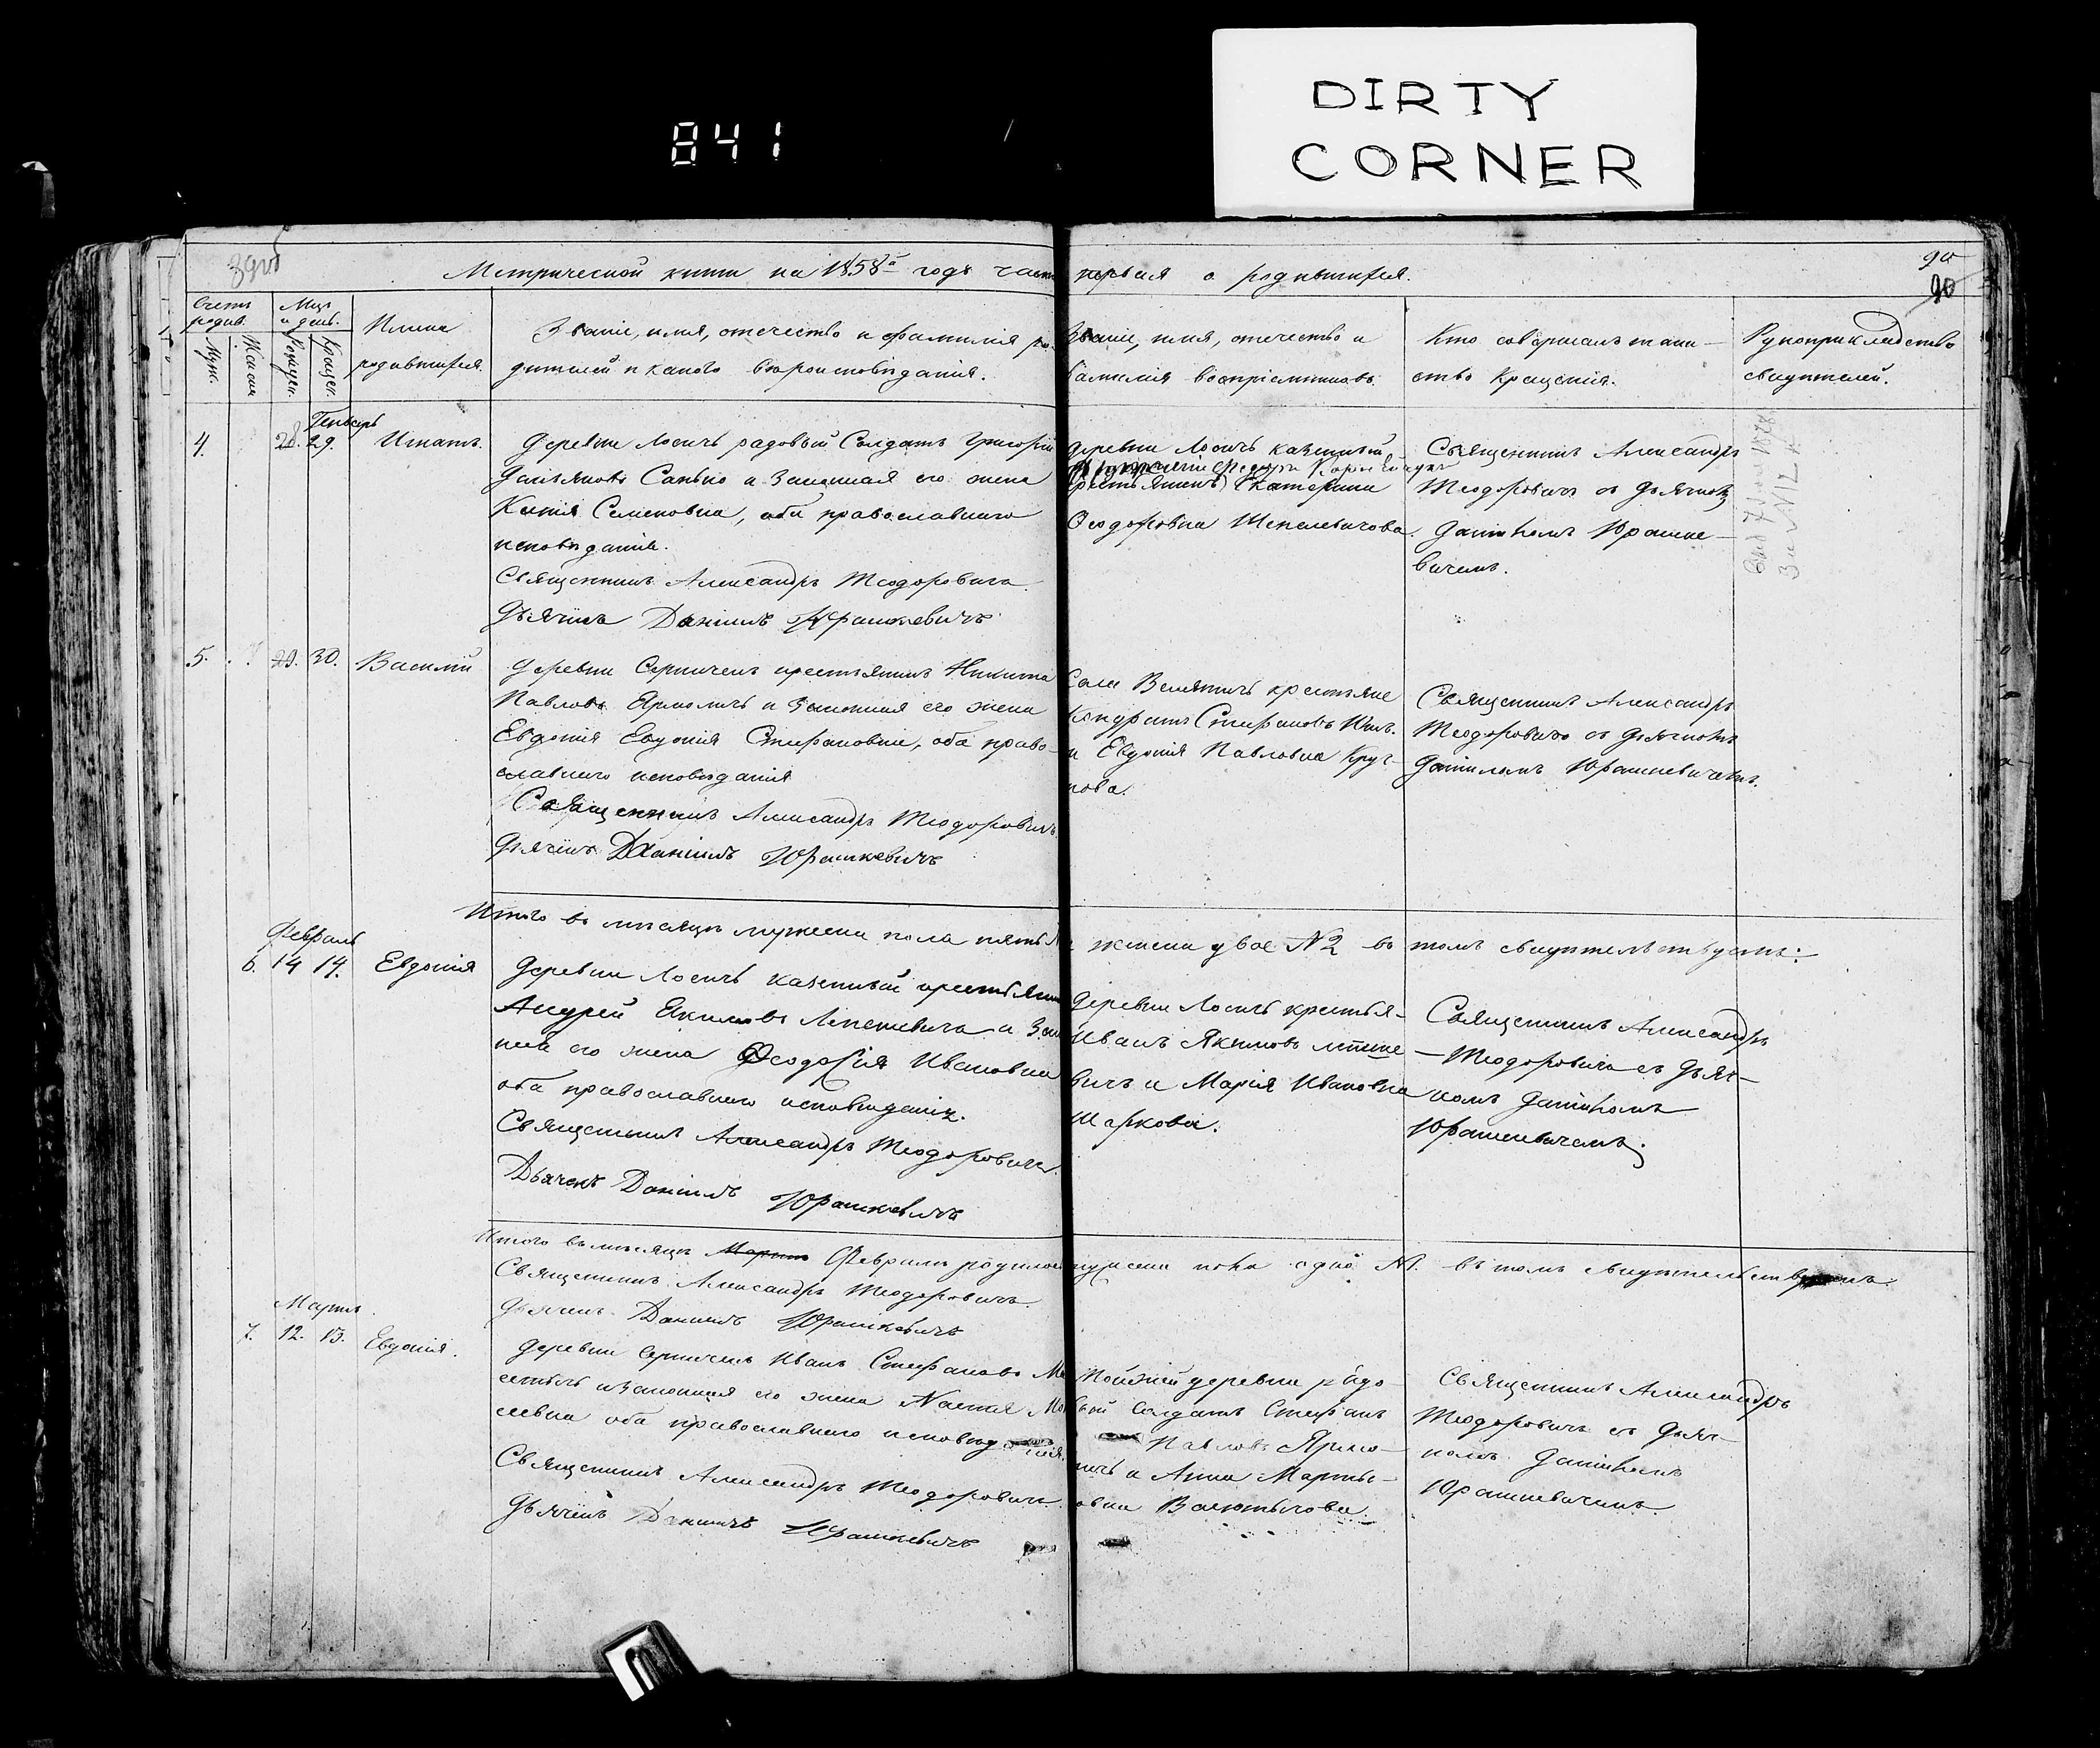 DIRTY
CORNER
841
Метрической книги на 1858й годъ часть первая о родившихся.
90
90
Счетъ родив.
Муж.
Женск.
Мцъ и день.
Рожден.
Крещен.
Имена
родившихся.
Званіе, имя, отечество и фамилія ро-
дителей и какого вѣроисповѣданія.
Званіе, имя, отечество и
фамилія воспріемниковъ.
Кто совершалъ таин-
ство крещенія.
Рукоприкладство
свидѣтелей.
Генварь
4. 28. 29. Игнатъ.
Деревни Лосичъ рядовый Солдатъ Григорій
Санько и законная его жена
Семеновна, оба православнаго
исповѣданія.
Священникъ Александръ Теодоровичъ
Дьячекъ Даніилъ Юрашкевичъ
деревни Лосичъ казенный
Екатерина
Феодоровна
Священникъ Александръ
Теодоровичъ съ Дьячкомъ
Даніиломъ Юрашке-
вичемъ.
5. 29. 30. Василій
Деревни крестьянинъ Никита
Павловъ Ярмоличъ и законная его жена
Евдокія Стефановны, оба право-
славнаго исповѣданія
Священникъ Александръ Теодоровичъ
Дьячекъ Даніилъ Юрашкевичъ
Села крестьяне
Кондратъ Стефановъ
и Евдокія Павловна Круг-
лова.
Священникъ Александръ
Теодоровичъ съ дьячкомъ
Даніиломъ Юрашкевичемъ.
Итого въ мѣсяцѣ мужеска пола пять женска двое №2 въ томъ свидѣтельствуемъ:
Февраль
6. 14 14. Евдокія
Деревни Лосичъ казенный крестьянинъ
Андрей Якимовъ и закон-
ная его жена Феодосія Ивановна
оба православнаго исповѣданія.
Священникъ Александръ Теодоровичъ
Дьячекъ Даніилъ Юрашкевичъ
Деревни Лосичъ крестья-
Иванъ Якимовъ
вичъ и Марія Ивановна
Шаркова.
Священникъ Александръ
Теодоровичъ съ Дьяч-
комъ Даніиломъ
Юрашкевичемъ.
Итого въ мѣсяцѣ Февралѣ родилось женска пола одна №1. въ томъ свидѣтельствуемъ.
Священникъ Александръ Теодоровичъ
Дьячекъ Даніилъ Юрашкевичъ
Мартъ.
7. 12. 13. Евдокія.
Деревни Иванъ Стефановъ
и законная его жена
оба православнаго исповѣданія.
Священникъ Александръ Теодоровичъ
Дьячекъ Даніилъ Юрашкевичъ
Той же деревни рядо-
вый Солдатъ Стефанъ
Павловъ Ярмо-
личъ и Анна
Священникъ Александръ
Теодоровичъ съ Дьяч-
комъ Даніиломъ
Юрашкевичемъ